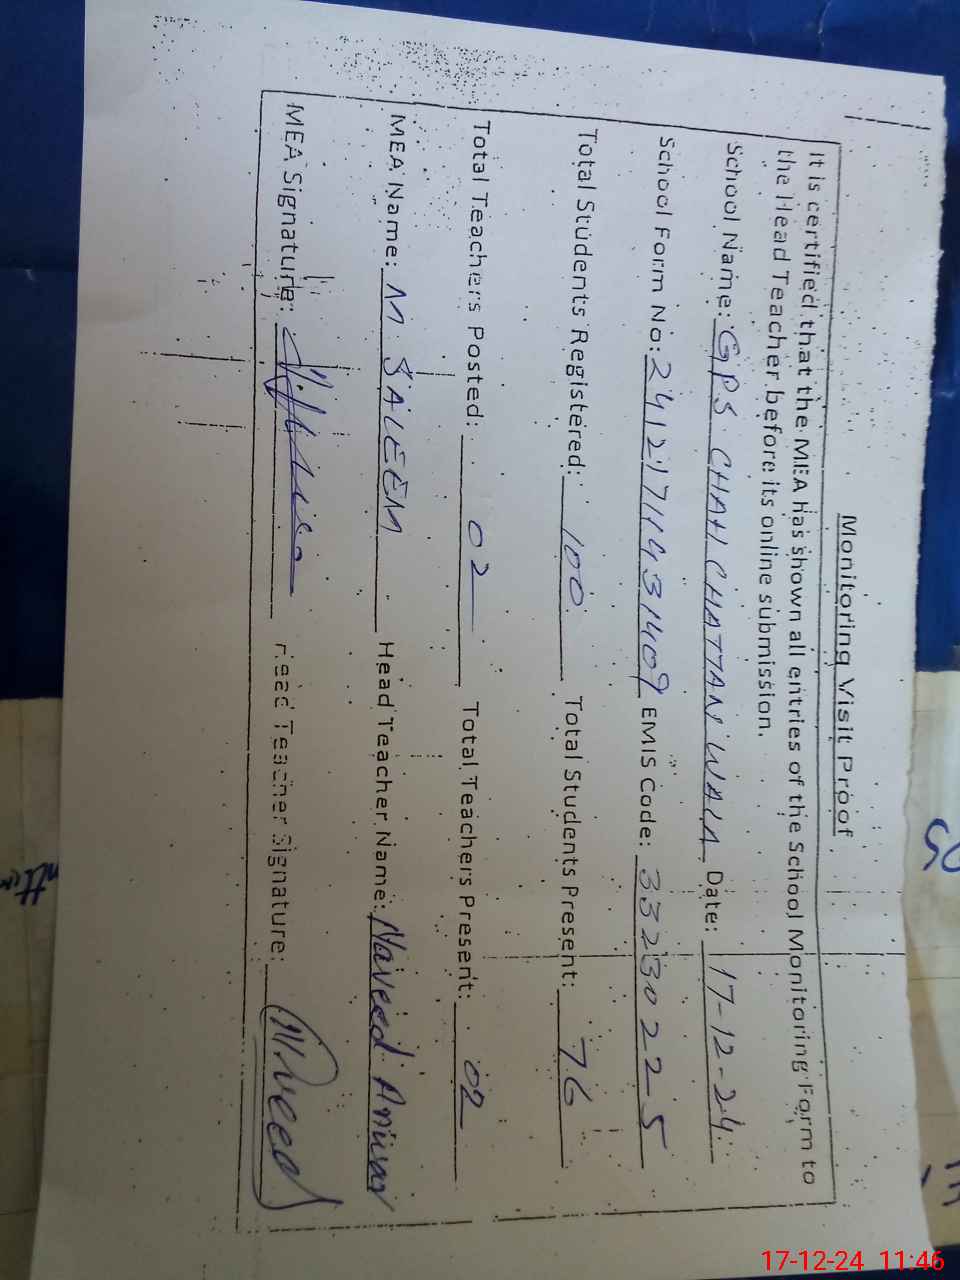 Monitoring Visit Proof
It is certified that the MEA has shown all entries of the School Monitoring Form to
the Head Teacher before its online submission.
School Name: GPS CHAH CHATTAN WALA Date: 17-12-24
School Form No: 24121711431409 EMIS Code: 33230225
Total Students Registered: 100 Total Students Present: 76
Total Teachers Posted: 02 Total Teachers Present: 02
MEA Name: M SALEEM Head Teacher Name: Naveed Anium
MEA Signature: Head Teacher Signature: Naveed
17-12-24 11:46